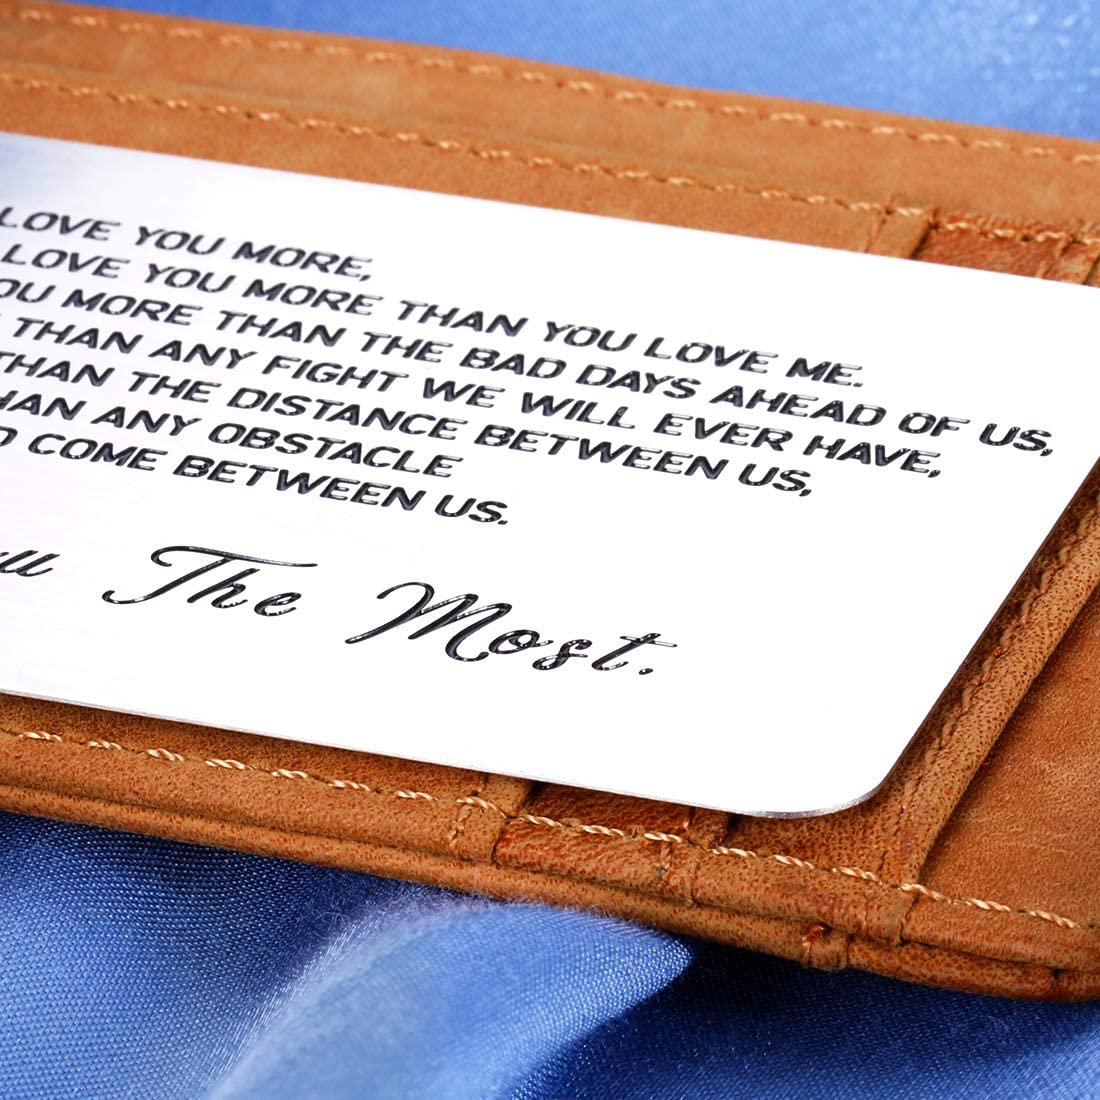 LOVE YOU MORE,
LOVE YOU MORE THAN YOU LOVE ME.
OU MORE THAN THE BAD DAYS AHEAD OF US,
THAN ANY FIGHT WE WILL EVER HAVE,
THAN THE DISTANCE BETWEEN US,
HAN ANY OBSTACLE
COME BETWEEN US.
The Most.